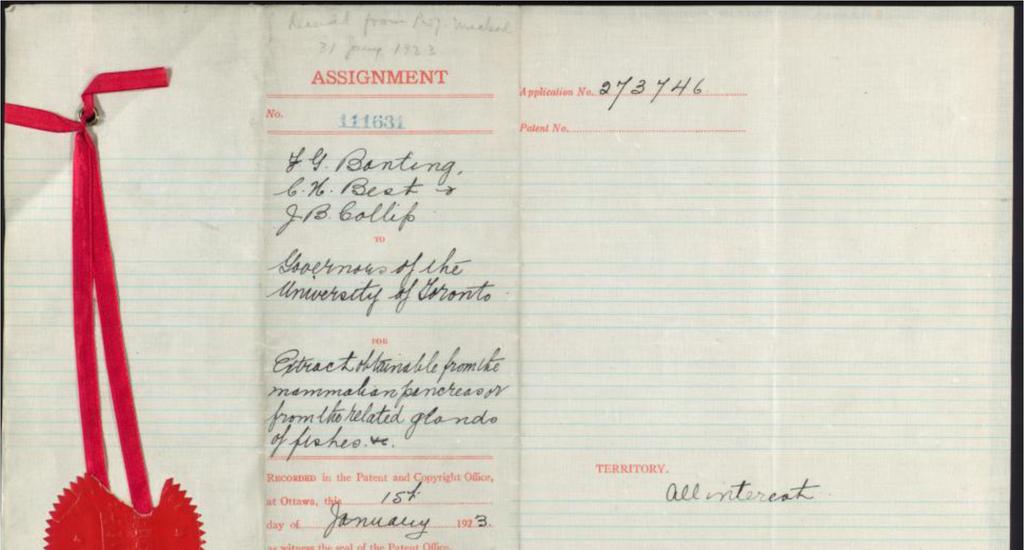 Received from Prof. Macleod
31 Jany 1923
ASSIGNMENT
No. 111631
F G. Banting,
C. H. Best &
J B Collip
TO
Governors of the
University of Toronto
FOR
Extract obtainable from the
mammalian pancreas or
from the related glands
of fishes. &c.
RECORDED in the Patent and Copyright Office,
at Ottawa, this 15th
day of January 1923.
as witness the seal of the Patent Office.
Application No. 273746
Patent No.
TERRITORY.
All interest